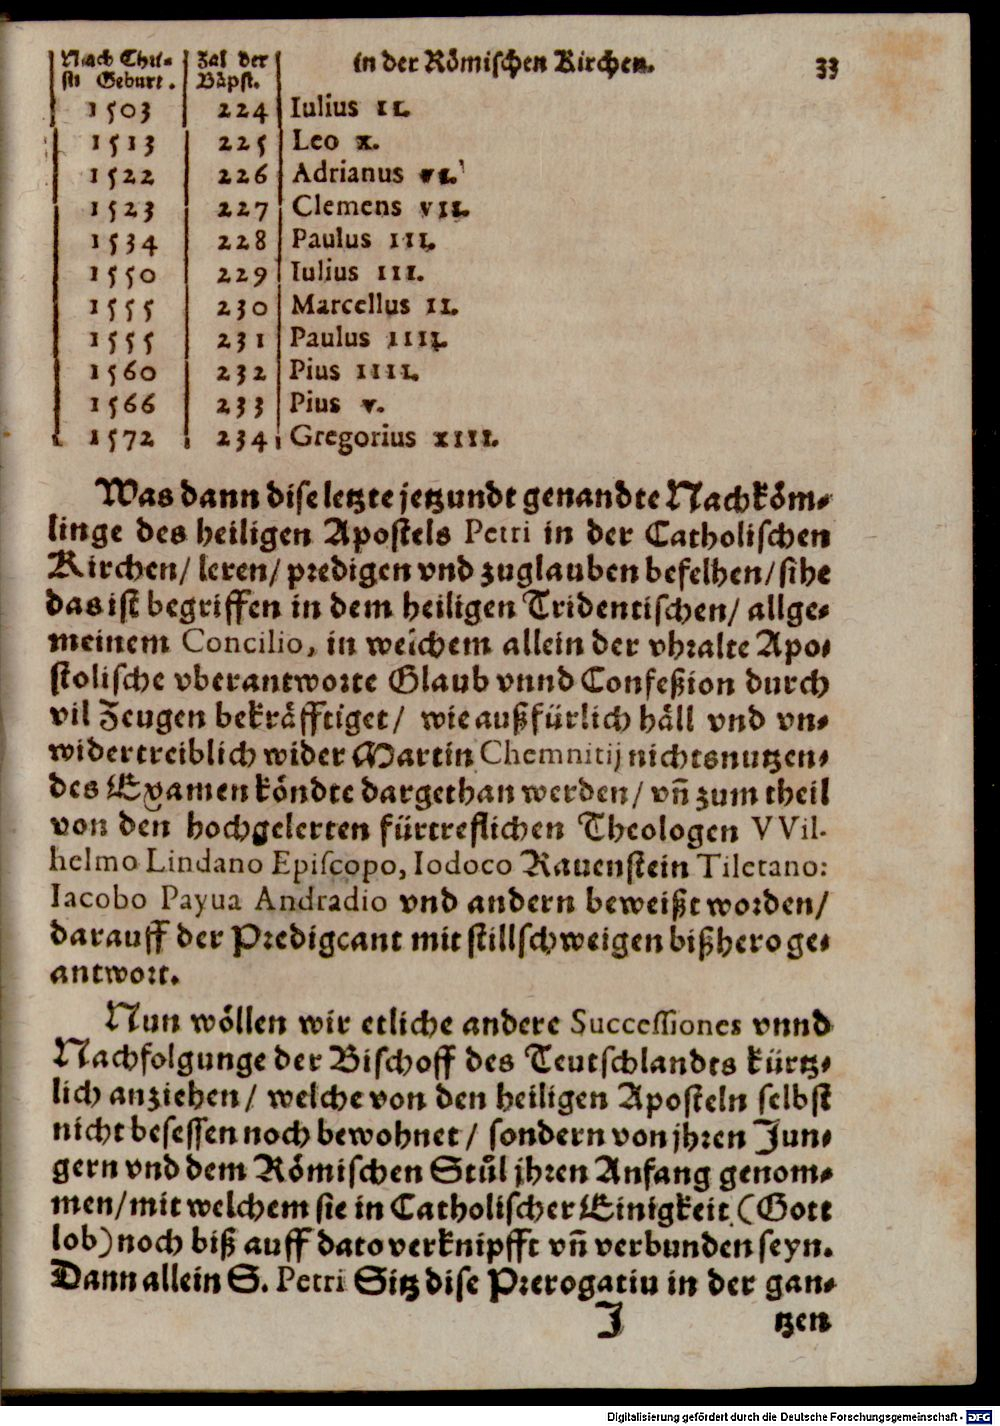 Nach Chri- Zal der in der Roͤmischen Kirchen. 33
sti Geburt. Baͤpst.
1503 224 Iulius II.
1513 225 Leo X.
1522 226 Adrianus VI.
1523 227 Clemens VII.
1534 228 Paulus III.
1550 229 Iulius III.
1555 230 Marcellus II.
1555 231 Paulus IIII.
1560 232 Pius IIII.
1566 233 Pius V.
1572 234 Gregorius XIII.
Was dann dise letzte jetzundt genandte Nachkoͤm-
linge des heiligen Apostels Petri in der Catholischen
Kirchen/ leren/ predigen vnd zuglauben befelhen/ sihe
das ist begriffen in dem heiligen Tridentischen/ allge-
meinem Concilio, in welchem allein der vhralte Apo-
stolische vberantworte Glaub vnnd Confeßion durch
vil Zeugen bekraͤfftiget/ wie außfuͤrlich haͤll vnd vn-
widertreiblich wider Martin Chemnitij nichtsnutzen-
des Examen koͤndte dargethan werden/ vñ zum theil
von den hochgelerten fuͤrtreflichen Theologen VVil-
helmo Lindano Episcopo, Iodoco Rauenstein Tiletano:
Iacobo Payua Andradio vnd andern beweißt worden/
darauff der Predigcant mit stillschweigen bißhero ge-
antwort.
Nun woͤllen wir etliche andere Successiones vnnd
Nachfolgunge der Bischoff des Teutschlandts kuͤrtz-
lich anziehen/ welche von den heiligen Aposteln selbst
nicht besessen noch bewohnet/ sondern von jhren Jun-
gern vnd dem Roͤmischen Stuͤl jhren Anfang genom-
men/ mit welchem sie in Catholischer Einigkeit (Gott
lob) noch biß auff dato verknipfft vñ verbunden seyn.
Dann allein S. Petri Sitz dise Prerogatiu in der gan-
J tzen
Digitalisierung gefördert durch die Deutsche Forschungsgemeinschaft - DFG